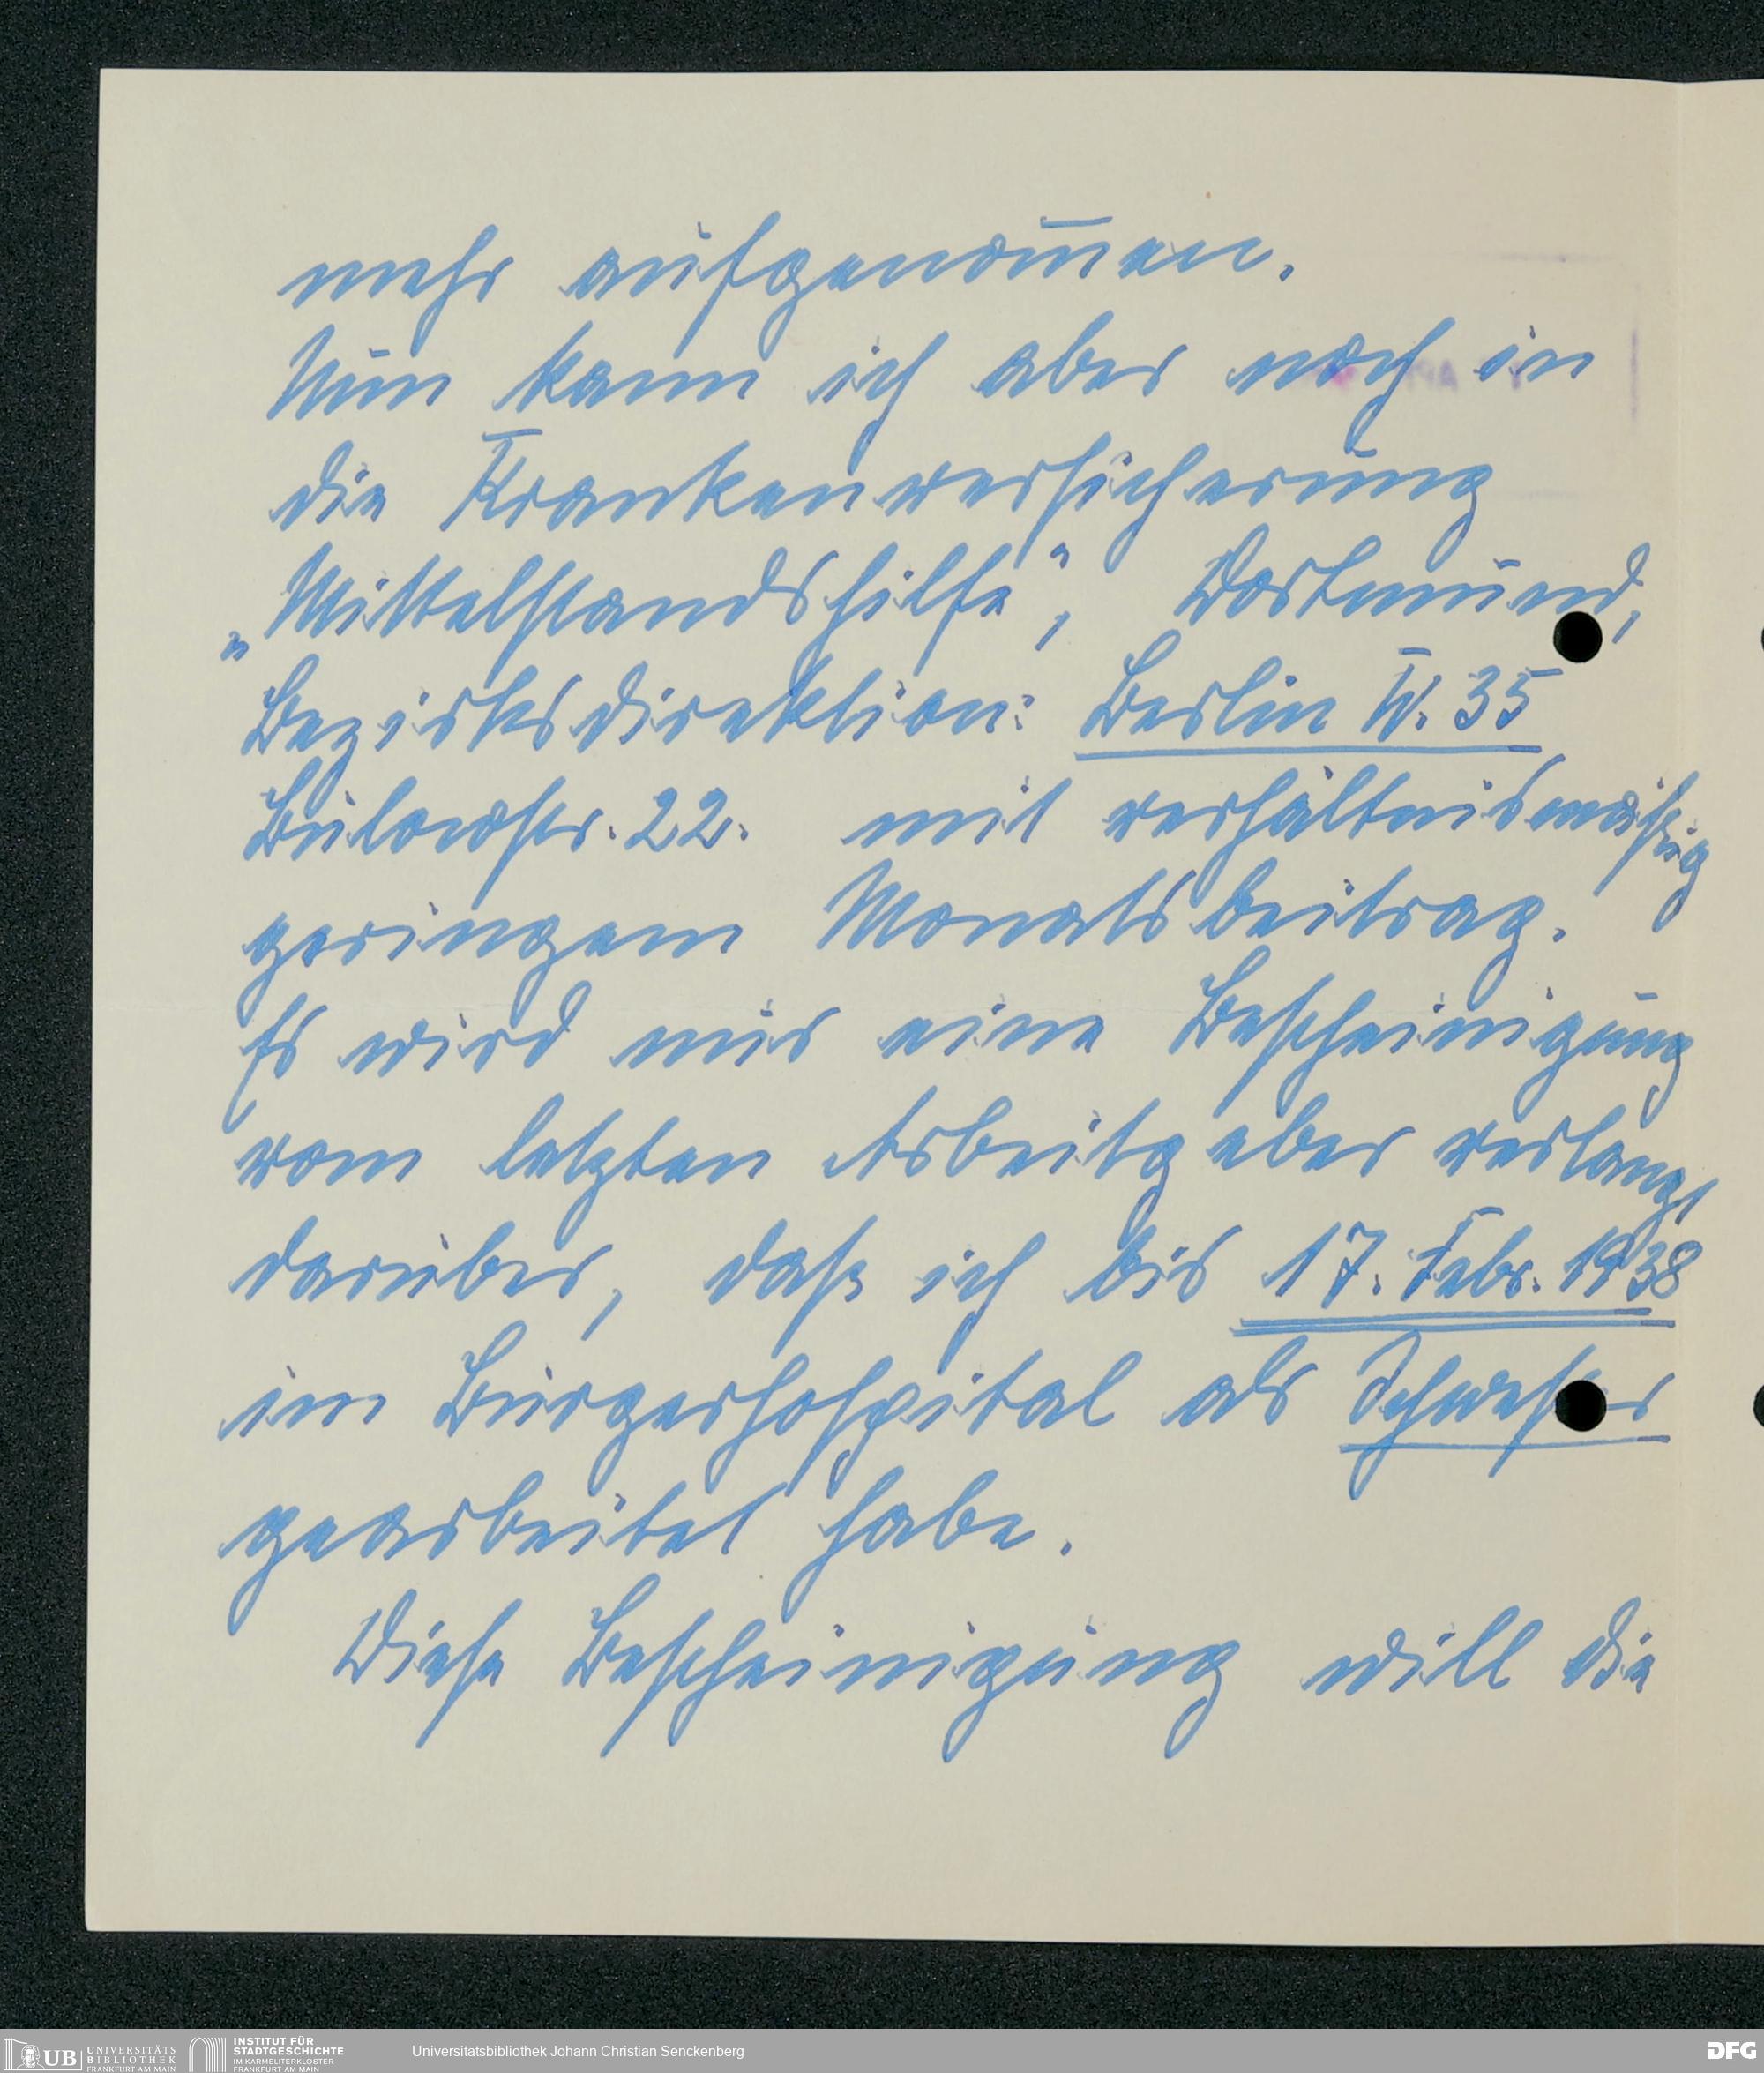 mehr aufgenom̄en.
Nun kann ich aber noch in
die Krankenversicherung
„Mittelstandshilfe“, Dortmund,
Bezirksdirektion: Berlin W. 35
Bülowstr. 22. mit verhältnismäßig
geringem Monatsbeitrag.
Es wird mir eine Bescheinigung
vom letzten Arbeitgeber verlangt
darüber, daß ich bis 17. Febr. 1938
im Bürgerhospital als Schwester
gearbeitet habe.
Diese Bescheinigung will die
UB UNIVERSITÄTS
BIBLIOTHEK
FRANKFURT AM MAIN
INSTITUT FÜR
STADTGESCHICHTE
IM KARMELITERKLOSTER
FRANKFURT AM MAIN
Universitätsbibliothek Johann Christian Senckenberg
DFG